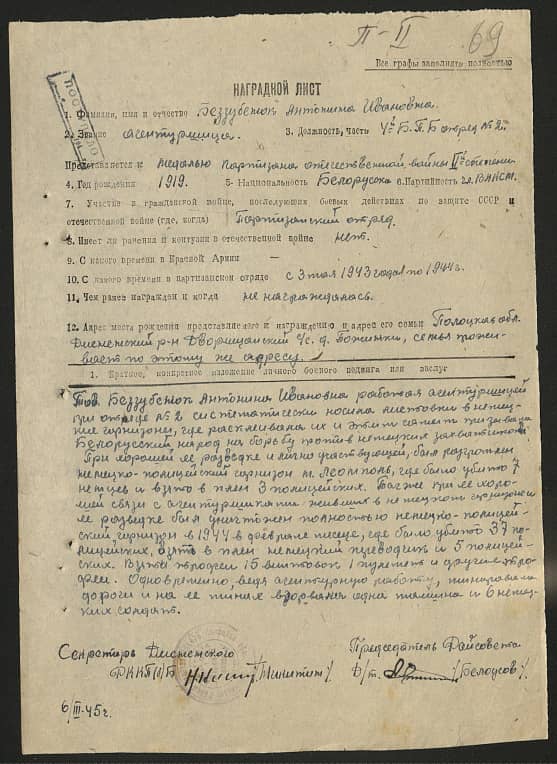 П-II 69
Все графы заполнять полностью
НАГРАДНОЙ ЛИСТ
1. Фамилия, имя и отчество Беззубенок Антонина Ивановна.
2. Звание агентурщица. 3. Должность, часть 4й Б.П.Б отряд №2.
Представляется к медалью партизана отечественной войны II й степени
4. Год рождения 1919. 5- Национальность Белоруска 6. Партийность ВЛКСМ.
7. Участие в гражданской войне, последующих боевых действиях по защите СССР и
отечественной войне (где, когда) Партизанский отряд.
8. Имеет ли ранения и контузии в отечественной войне нет.
9. С какого времени в Красной Армии —
10. С какого времени в партизанском отряде с 3 мая 1943 года по 1944 г.
11. Чем ранее награжден и когда не награждалась.
12. Адрес места рождения представляемого к награждению и адрес его семьи Полоцкая обл.
Дисненский р-н Дворищанский с/с. д. семья прожи-
вает по этому же адресу.
1. Краткое, конкретное изложение личного боевого подвига или заслуг
Тов. Беззубенок Антонина Ивановна работая агентурщицей
при отряде №2 систематически носила листовки в немец-
кие гарнизоны, где расклеивала их и этим самым призывала
Белорусский народ на борьбу против немецких захватчиков.
При хорошей ее разведке и лично участвующей, был разгромлен
немецко-полицейский гарнизон м. Леонполь, где было убито 7
немцев и взято в плен 3 полицейских. Также при ее хоро-
шей связи с агентурщиками живших в немецком гарнизоне и
ее разведке был уничтожен полностью немецко-полицей-
ский гарнизон в 1944 в феврале месяце, где было убито 37 по-
лицейских, взято в плен немецкий переводчик и 5 полицей-
ских. Взяты трофеи 15 винтовок 1 пулемет и другие тро-
феи. Одновременно, ведя агентурную работу, минировала
дороги и на ее минах взорвана одна машина и 6 немец-
ких солдат.
Секретарь Дисненского Председатель Райсовета
РККП(б)Б /Никитин/. /Белоусов/.
6/III-45 г.